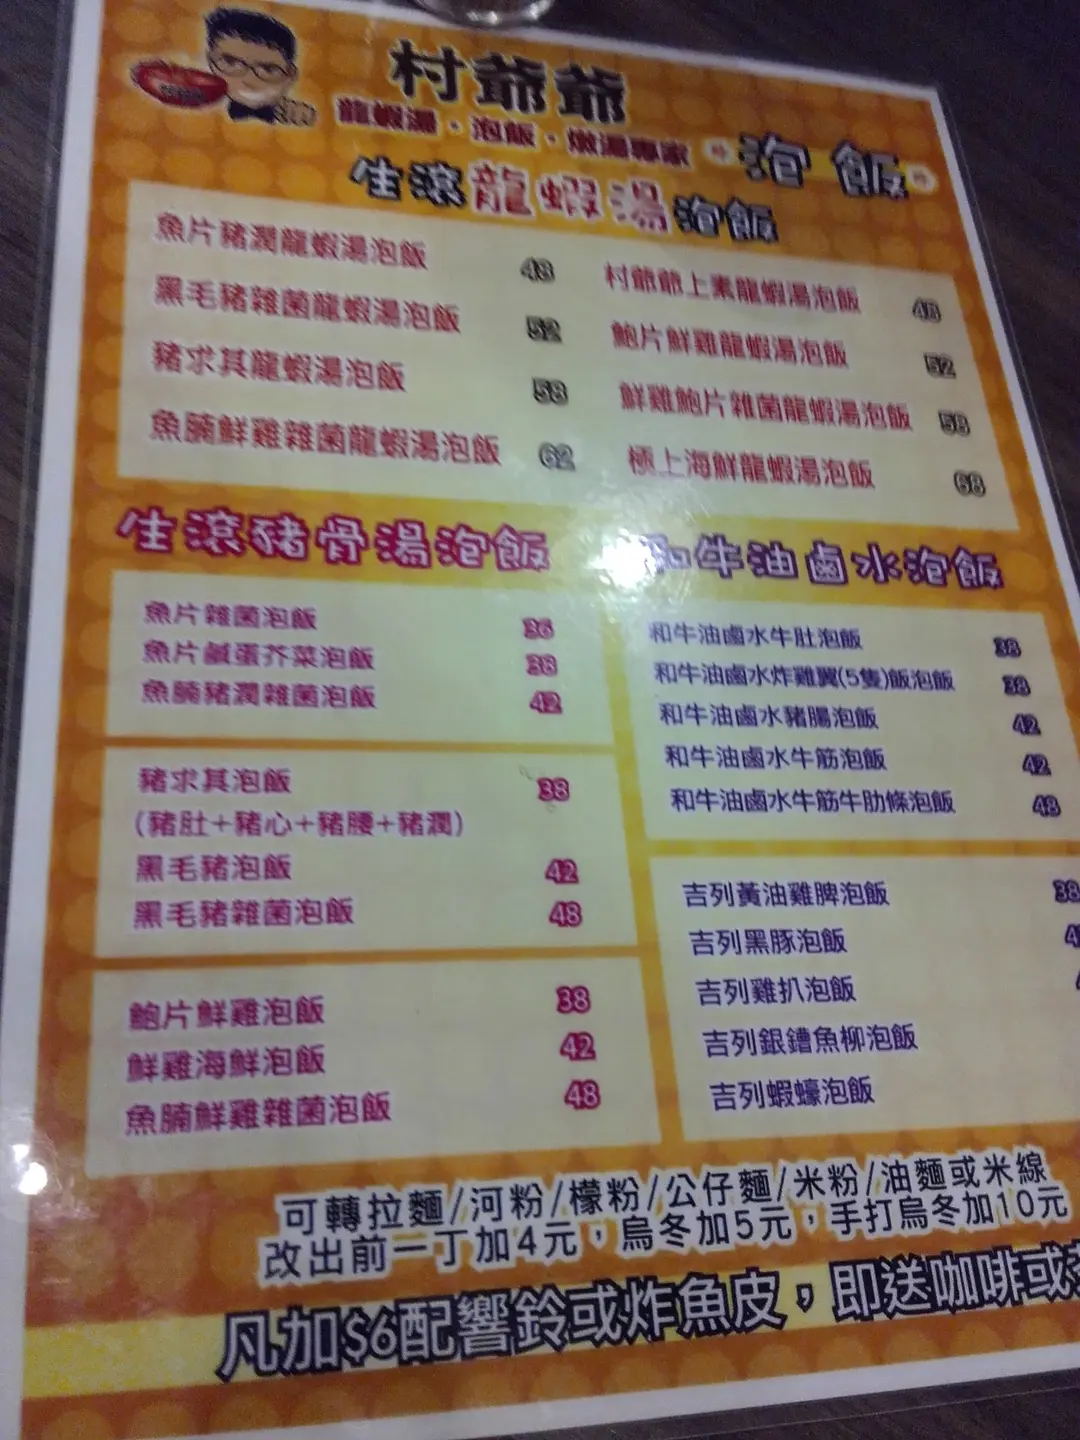 村爺爺
龍蝦湯·泡飯·燉湯專家
泡飯
生滾龍蝦湯泡飯
魚片豬潤龍蝦湯泡飯 48
黑毛豬雜菌龍蝦湯泡飯 52
豬求其龍蝦湯泡飯 58
魚腩鮮雞雜菌龍蝦湯泡飯 62
村爺爺上素龍蝦湯泡飯 48
鮑片鮮雞龍蝦湯泡飯 52
鮮雞鮑片雜菌龍蝦湯泡飯 58
極上海鮮龍蝦湯泡飯 68
生滾豬骨湯泡飯
魚片雜菌泡飯 36
魚片鹹蛋芥菜泡飯 38
魚腩豬潤雜菌泡飯 42
豬求其泡飯 38
(豬肚+豬心+豬腰+豬潤)
黑毛豬泡飯 42
黑毛豬雜菌泡飯 48
鮑片鮮雞泡飯 38
鮮雞海鮮泡飯 42
魚腩鮮雞雜菌泡飯 48
和牛油鹵水泡飯
和牛油鹵水牛肚泡飯 38
和牛油鹵水炸雞翼(5隻)飯泡飯 38
和牛油鹵水豬腸泡飯 42
和牛油鹵水牛筋泡飯 42
和牛油鹵水牛筋牛肋條泡飯 48
吉列黃油雞脾泡飯 38
吉列黑豚泡飯
吉列雞扒泡飯
吉列銀鱈魚柳泡飯
吉列蝦蠔泡飯
可轉拉麵/河粉/檬粉/公仔麵/米粉/油麵或米線
改出前一丁加4元，烏冬加5元，手打烏冬加10元
凡加$6配響鈴或炸魚皮，即送咖啡或